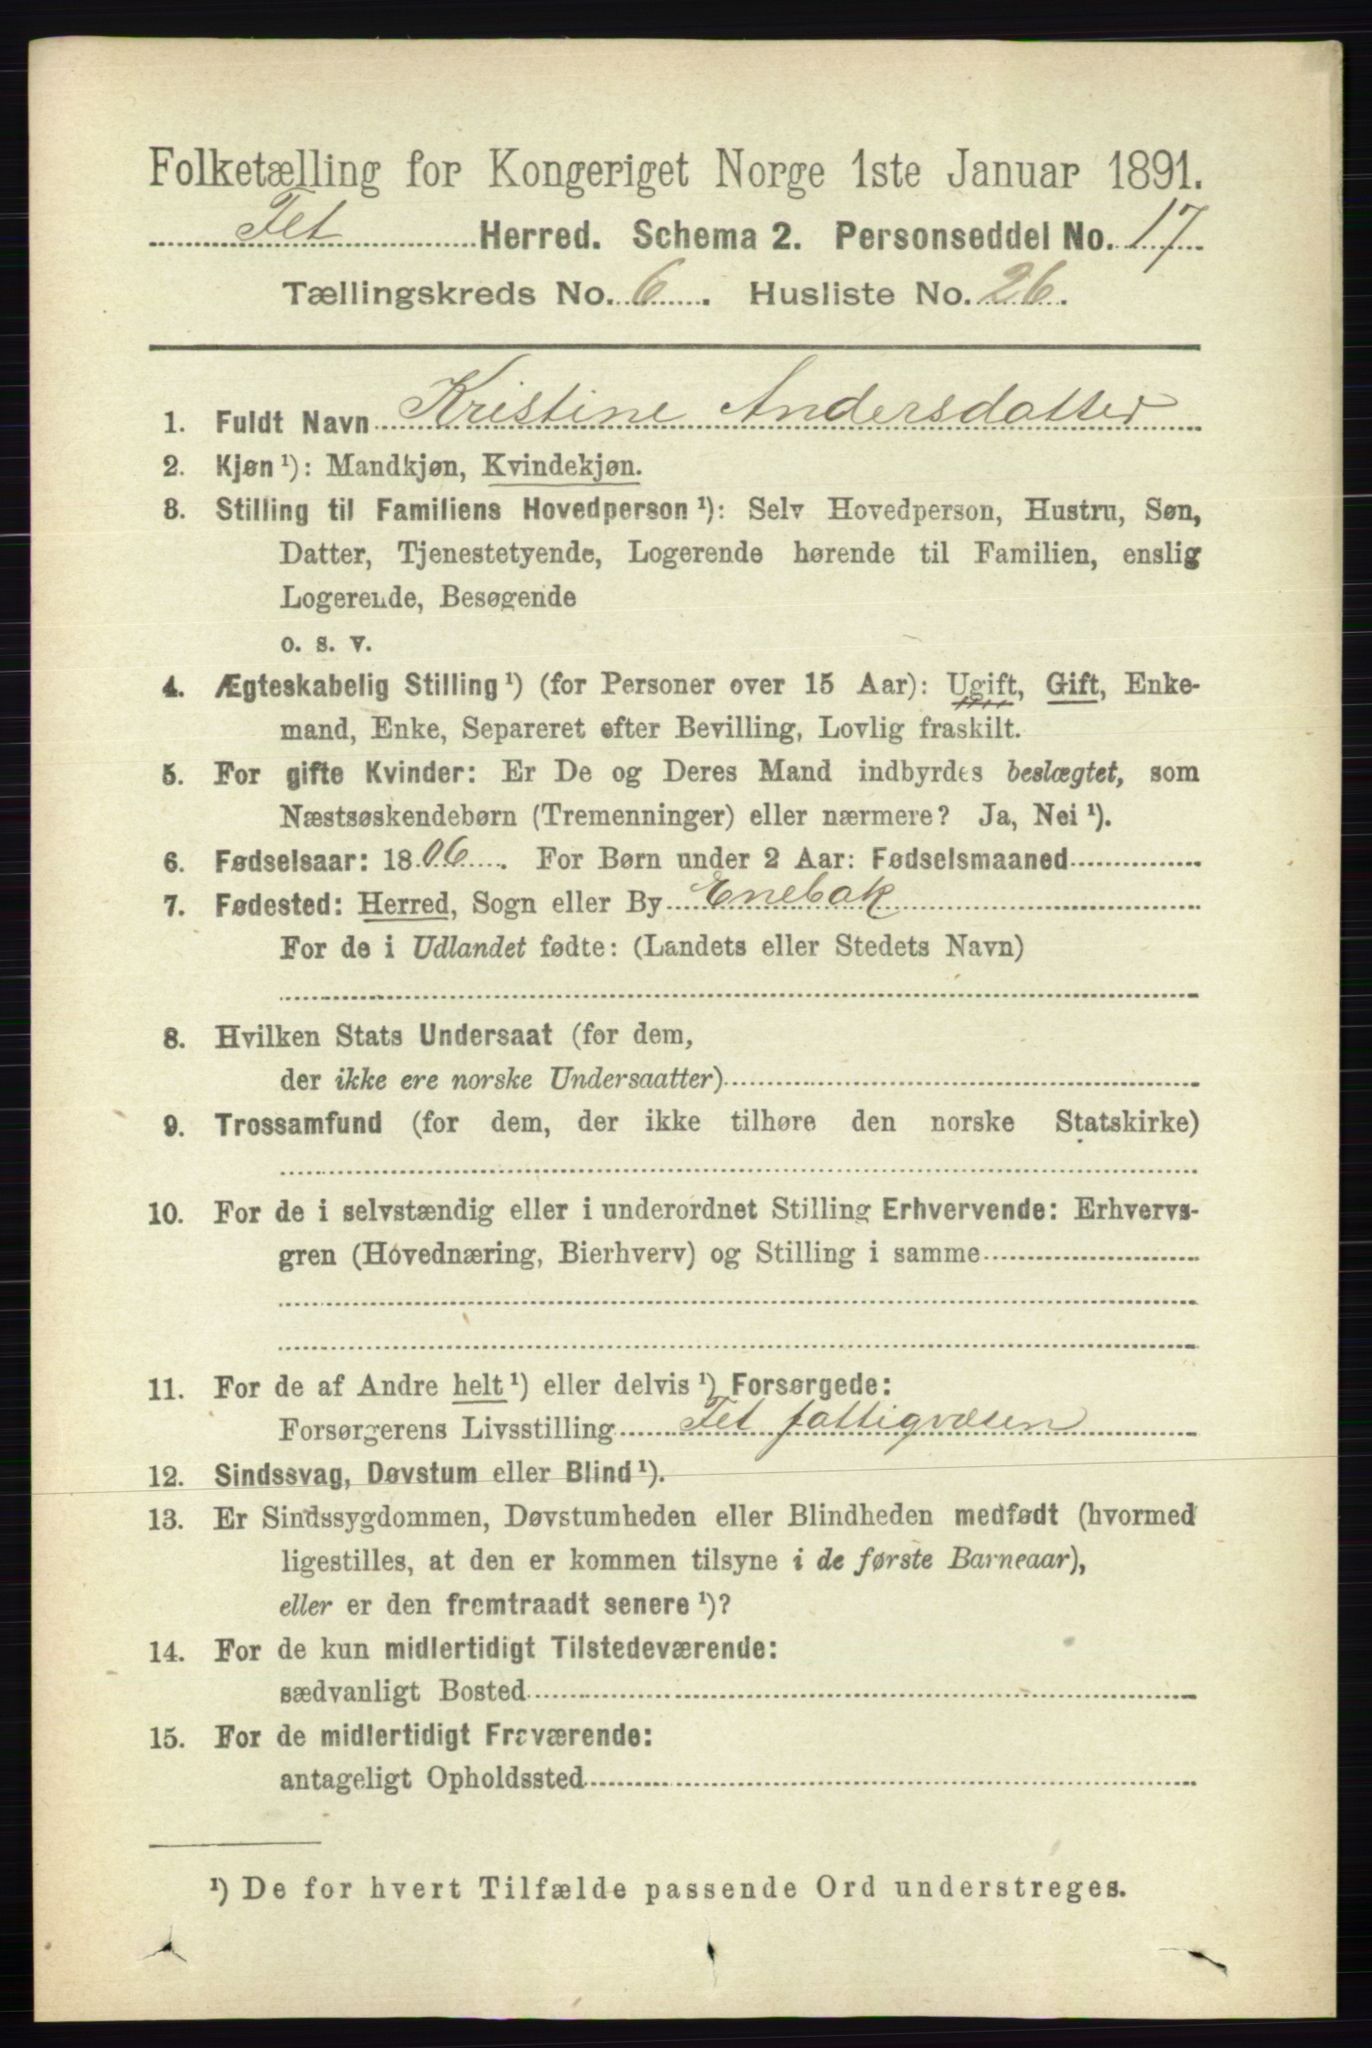 Folketælling for Kongeriget Norge 1ste Januar 1891.
Fet Herred. Schema 2. Personseddel No. 17
Tællingskreds No. 6. Husliste No. 26.
1. Fuldt Navn Kristine Andersdatter
2. Kjøn ¹): Mandkjøn, Kvindekjøn.
3. Stilling til Familiens Hovedperson ¹): Selv Hovedperson, Hustru, Søn,
Datter, Tjenestetyende, Logerende hørende til Familien, enslig
Logerende, Besøgende
o. s. v.
4. Ægteskabelig Stilling ¹) (for Personer over 15 Aar): Ugift, Gift, Enke-
mand, Enke, Separeret efter Bevilling, Lovlig fraskilt.
5. For gifte Kvinder: Er De og Deres Mand indbyrdes beslægtet, som
Næstsøskendebørn (Tremenninger) eller nærmere? Ja, Nei ¹).
6. Fødselsaar: 1806. For Børn under 2 Aar: Fødselsmaaned
7. Fødested: Herred, Sogn eller By Enebak
For de i Udlandet fødte: (Landets eller Stedets Navn)
8. Hvilken Stats Undersaat (for dem,
der ikke ere norske Undersaatter)
9. Trossamfund (for dem, der ikke tilhøre den norske Statskirke)
10. For de i selvstændig eller i underordnet Stilling Erhvervende: Erhvervs-
gren (Hovednæring, Bierhverv) og Stilling i samme
11. For de af Andre helt ¹) eller delvis ¹) Forsørgede:
Forsørgerens Livsstilling Fet fattigvæsen
12. Sindssvag, Døvstum eller Blind ¹).
13. Er Sindssygdommen, Døvstumheden eller Blindheden medfødt (hvormed
ligestilles, at den er kommen tilsyne i de første Barneaar),
eller er den fremtraadt senere ¹)?
14. For de kun midlertidigt Tilstedeværende:
sædvanligt Bosted
15. For de midlertidigt Fraværende:
antageligt Opholdssted
¹) De for hvert Tilfælde passende Ord understreges.